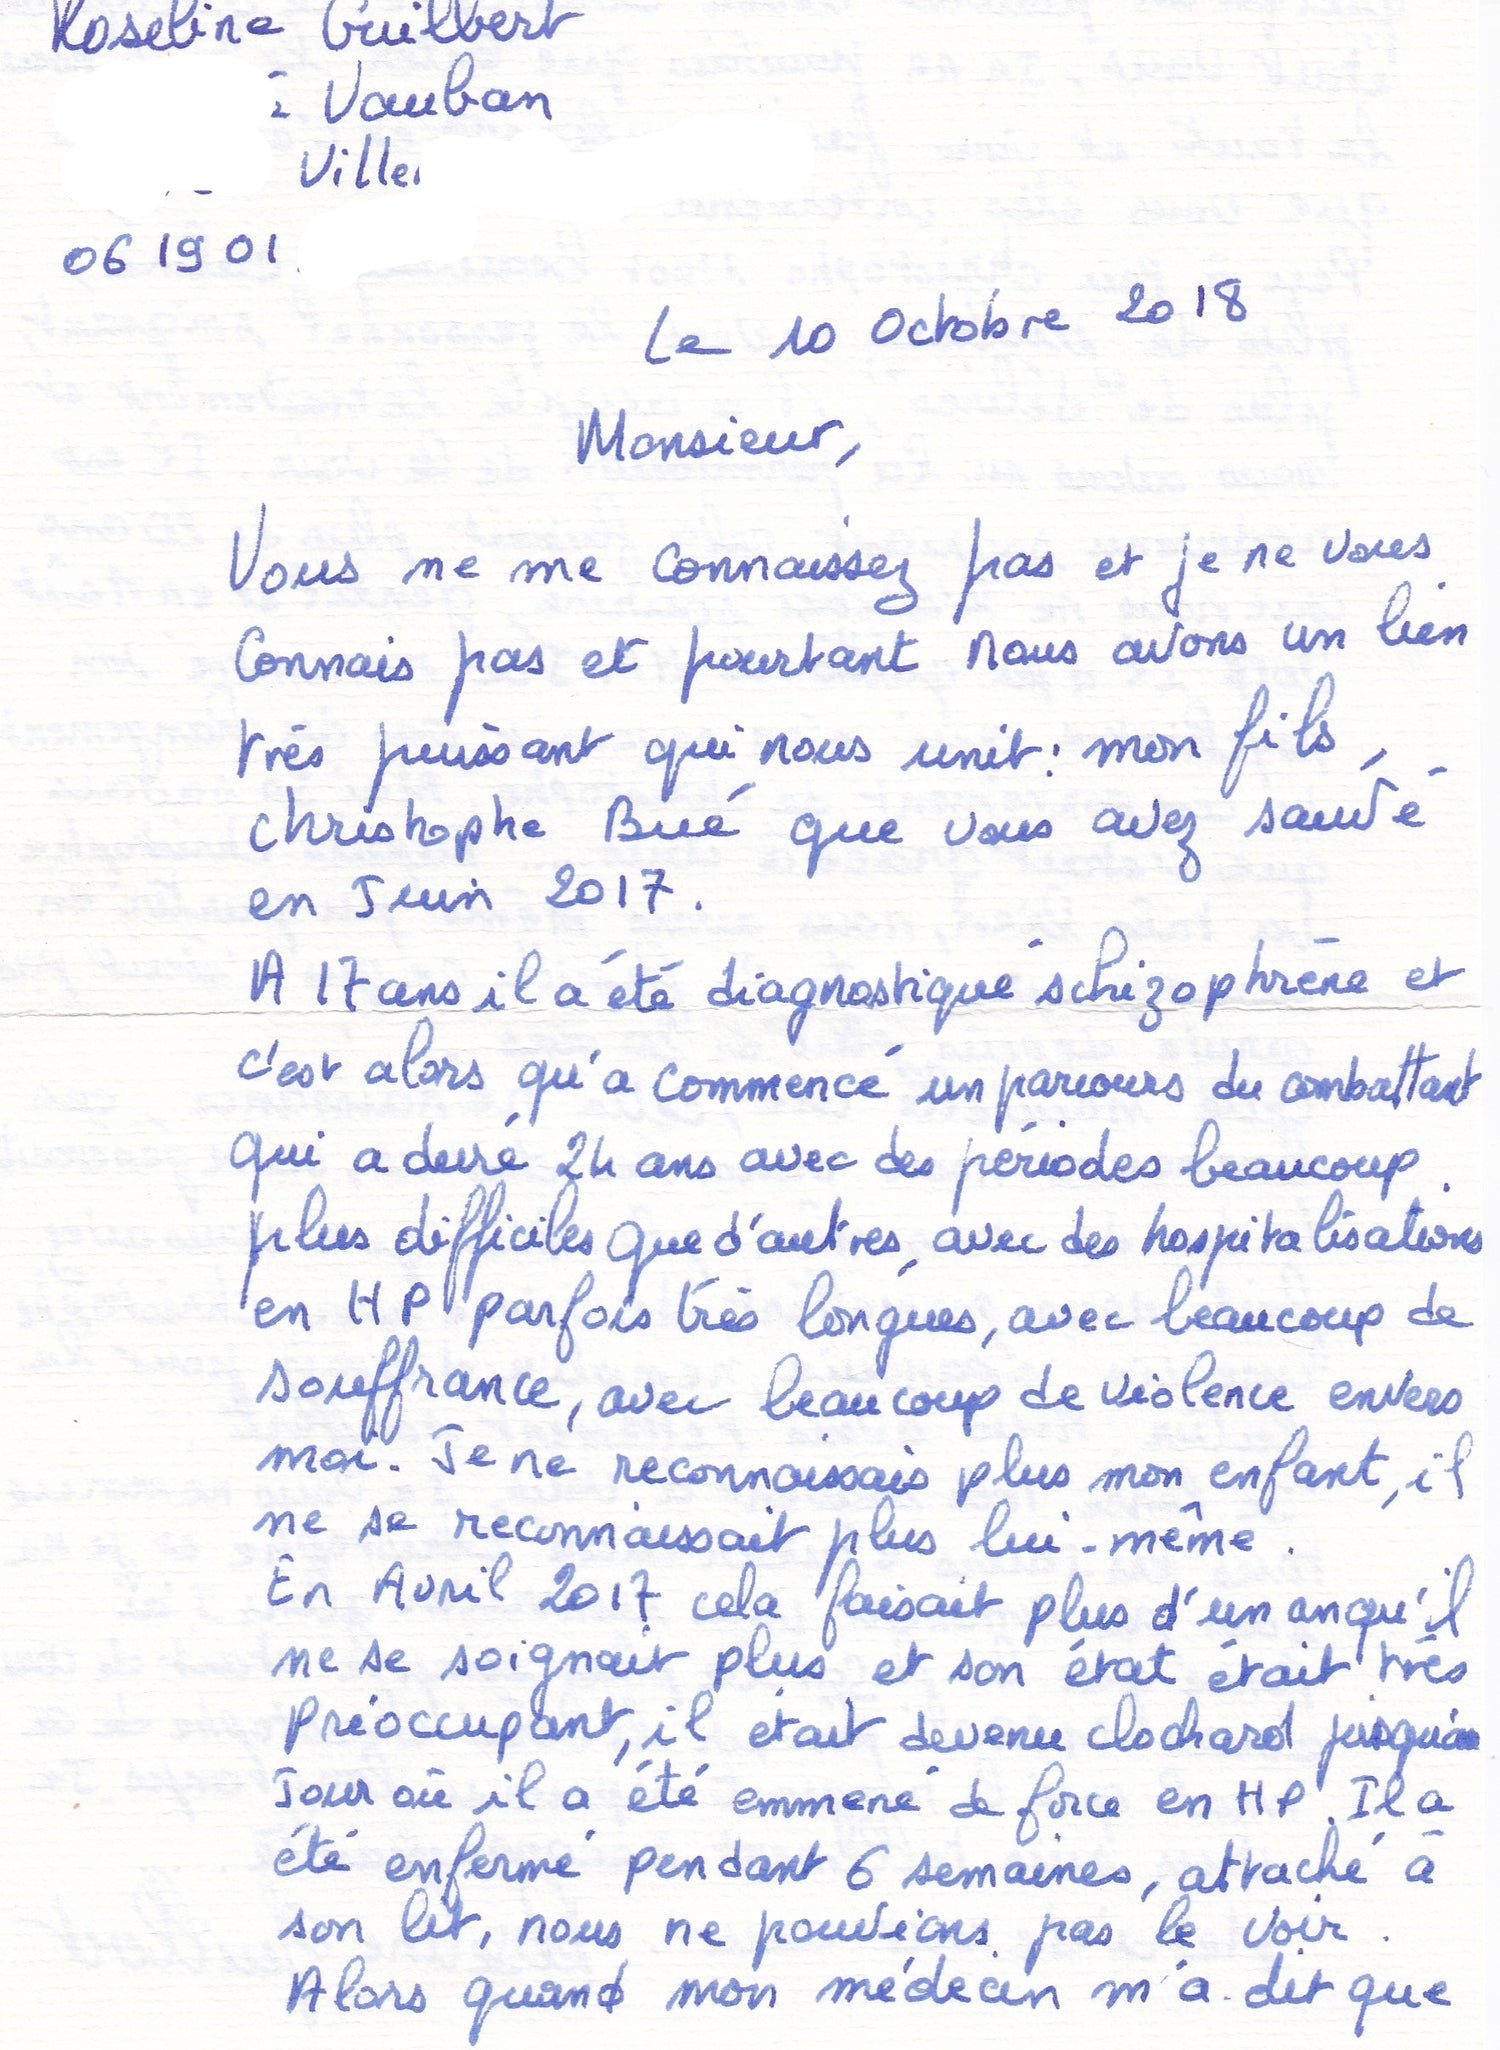 Roseline Guilbert
Vauban
Ville
06 19 01
Le 10 Octobre 2018
Monsieur,
Vous ne me connaissez pas et je ne vous
connais pas et pourtant nous avons un lien
très puissant qui nous unit : mon fils,
christophe Bué que vous avez sauvé
en Juin 2017.
A 17 ans il a été diagnostiqué schizophrène et
c'est alors qu'a commencé un parcours du combattant
qui a duré 24 ans avec des périodes beaucoup
plus difficiles que d'autres, avec des hospitalisations
en HP parfois très longues, avec beaucoup de
souffrance, avec beaucoup de violence envers
moi. Je ne reconnaissais plus mon enfant, il
ne se reconnaissait plus lui-même.
En Avril 2017 cela faisait plus d'un an qu'il
ne se soignait plus et son état était très
préoccupant, il était devenu clochard jusqu'au
Jour où il a été emmené de force en HP. Il a
été enfermé pendant 6 semaines, attaché à
son lit, nous ne pouvions pas le voir.
Alors quand mon médecin m'a dit que